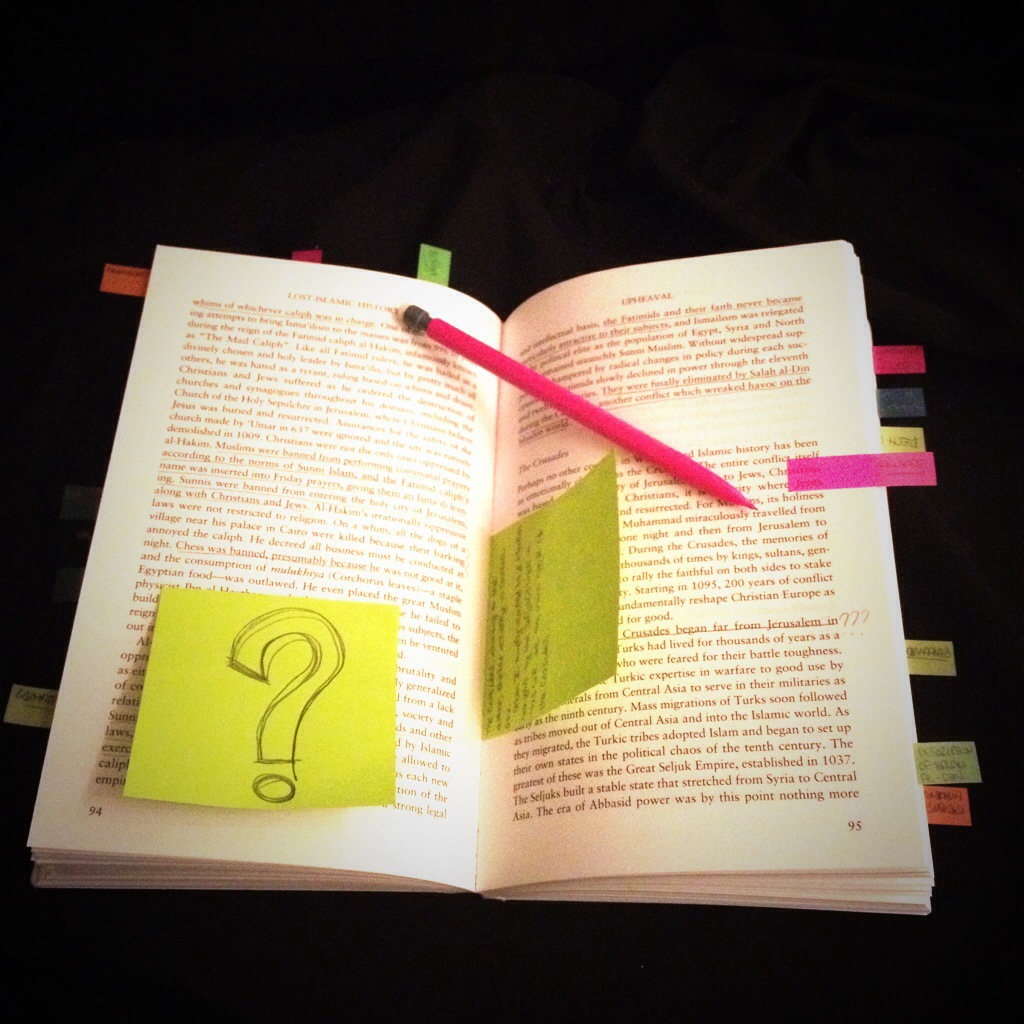 LOST ISLAMIC HISTORY
whims of whichever caliph was in charge. One of
ing attempts to bring Isma'ilism to the masses was from
during the reign of the Fatimid caliph al-Hakim, infamously known
as "The Mad Caliph". Like all Fatimid rulers, he was hailed as a
divinely chosen and holy leader by Isma'ilis, but by pretty much all
others, he was hated as a tyrant, ruling based on whims and desires.
Christians and Jews suffered as he ordered the destruction of
churches and synagogues throughout his domain, including the
Church of the Holy Sepulchre in Jerusalem, where Christians believe
Jesus was buried and resurrected. Assurances for the safety of the
church made by 'Umar in 637 were ignored and the site was entirely
demolished in 1009. Christians were not the only ones oppressed by
al-Hakim. Muslims were banned from performing communal prayers
according to the norms of Sunni Islam, and the Fatimid caliph's
name was inserted into Friday prayers, giving them an Isma'ili lean-
ing. Sunnis were banned from entering the holy city of Jerusalem,
along with Christians and Jews. Al-Hakim's irrationally oppressive
laws were not restricted to religion. On a whim, all the dogs of a
village near his palace in Cairo were killed because their barking
annoyed the caliph. He decreed all business must be conducted at
night. Chess was banned, presumably because he was not good at it,
and the consumption of mulukhiya (Corchorus leaves)—a staple
Egyptian food—was outlawed. He even placed the great Muslim
physicist Ibn al-
build he failed to
reign subjects, the
out he ventured
Al-
oppre brutality and
as eit generalized
of co from a lack
relati society and
Sunn and other
laws, by Islamic
exerc allowed to
caliph as each new
empi tion of the
strong legal
94
?
UPHEAVAL
intellectual basis, the Fatimids and their faith never became
particularly attractive to their subjects, and Ismailism was relegated
elite as the population of Egypt, Syria and North
remained staunchly Sunni Muslim. Without widespread sup-
hampered by radical changes in policy during each suc-
Fatimids slowly declined in power through the eleventh
They were finally eliminated by Salah al-Din
during the another conflict which wreaked havoc on the
Muslim world.
The Crusades
Perhaps no other Islamic history has been
as emotionally the Cru The entire conflict itself
was bas y of Jerusalem to Jews, Christians
Christians, it is city where Jesus
and resurrected. For Muslims, its holiness
Muhammad miraculously travelled from
one night and then from Jerusalem to
During the Crusades, the memories of
thousands of times by kings, sultans, gen-
to rally the faithful on both sides to stake
y. Starting in 1095, 200 years of conflict
undamentally reshape Christian Europe as
d for good.
Crusades began far from Jerusalem in ???
Turks had lived for thousands of years as a
who were feared for their battle toughness.
Turkic expertise in warfare to good use by
erals from Central Asia to serve in their militaries as
as the ninth century. Mass migrations of Turks soon followed
as tribes moved out of Central Asia and into the Islamic world. As
they migrated, the Turkic tribes adopted Islam and began to set up
their own states in the political chaos of the tenth century. The
greatest of these was the Great Seljuk Empire, established in 1037.
The Seljuks built a stable state that stretched from Syria to Central
Asia. The era of Abbasid power was by this point nothing more
95